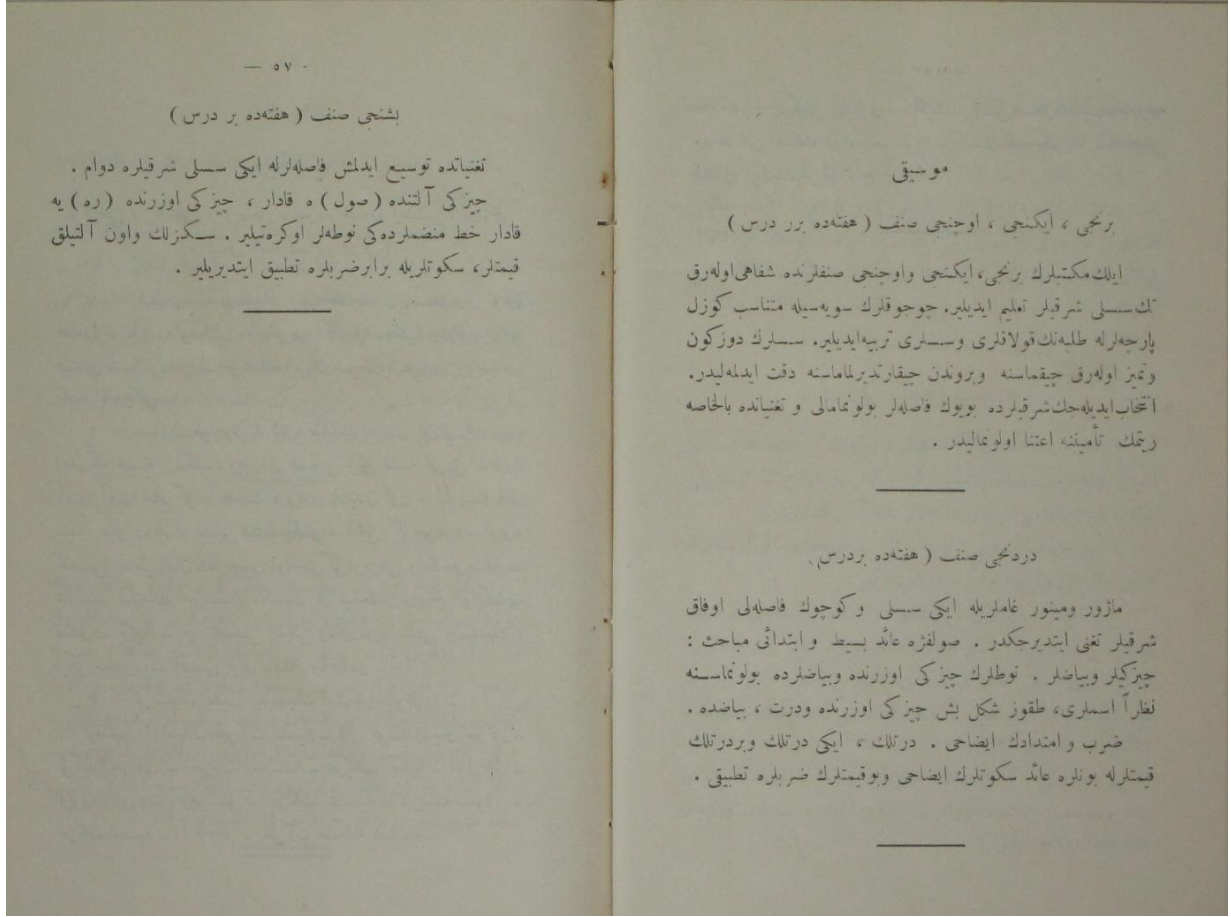 موسیقی
برنجی ، ایکنجی ، اوچنجی صنف ( هفته‌ده برر درس )
ایلك مكتبلرك برنجی، ایکنجی واوچنجی صنفلرنده شفاهی اوله‌رق
تك سسلی شرقیلر تعلیم ایدیلیر. چوجوقلرك سویه‌سیله متناسب كوزل
پارچه‌لرله طلبه‌نك قولاقلری وسسلری تربیه ایدیلیر. سسلرك دوزكون
وتمیز اوله‌رق چیقماسنه وبروندن چیقارتدیرلماماسنه دقت ایدلمه‌لیدر.
انتخاب ایدیله‌جك شرقیلرده بویوك فاصله‌لر بولونمامالی و تغنیاتده بالخاصه
ریتمك تأمیننه اعتنا اولونمالیدر .
دردنجی صنف ( هفته‌ده بردرس )
ماژور ومینور غاملریله ایکی سسلی و كوچوك فاصله‌لی اوفاق
شرقیلر تغنی ایتدیرجكدر . صولفژه عائد بسیط و ابتدائی مباحث :
چیزكیلر وبیاضلر . نوطلرك چیزكی اوزرنده وبیاضلرده بولونماسنه
نظراً اسملری، طقوز شكل بش چیزكی اوزرنده ودرت ، بیاضده .
ضرب و امتدادك ایضاحی . درتلك ، ایکی درتلك وبردرتلك
قیمتلرله بونلره عائد سكوتلرك ایضاحی وبوقیمتلرك ضربلره تطبیقی .
— ٥٧ -
بشنجی صنف ( هفته‌ده بر درس )
تغنیاتده توسیع ایدلمش فاصله‌لرله ایکی سسلی شرقیلره دوام .
چیزكی آلتنده ( صول ) ه قادار ، چیزكی اوزرنده ( ره ) یه
قادار خط منضملرده‌كی نوطه‌لر اوكره‌تیلیر . سكزلك واون آلتیلق
قیمتلر، سكوتلریله برابر ضربلره تطبیق ایتدیریلیر .